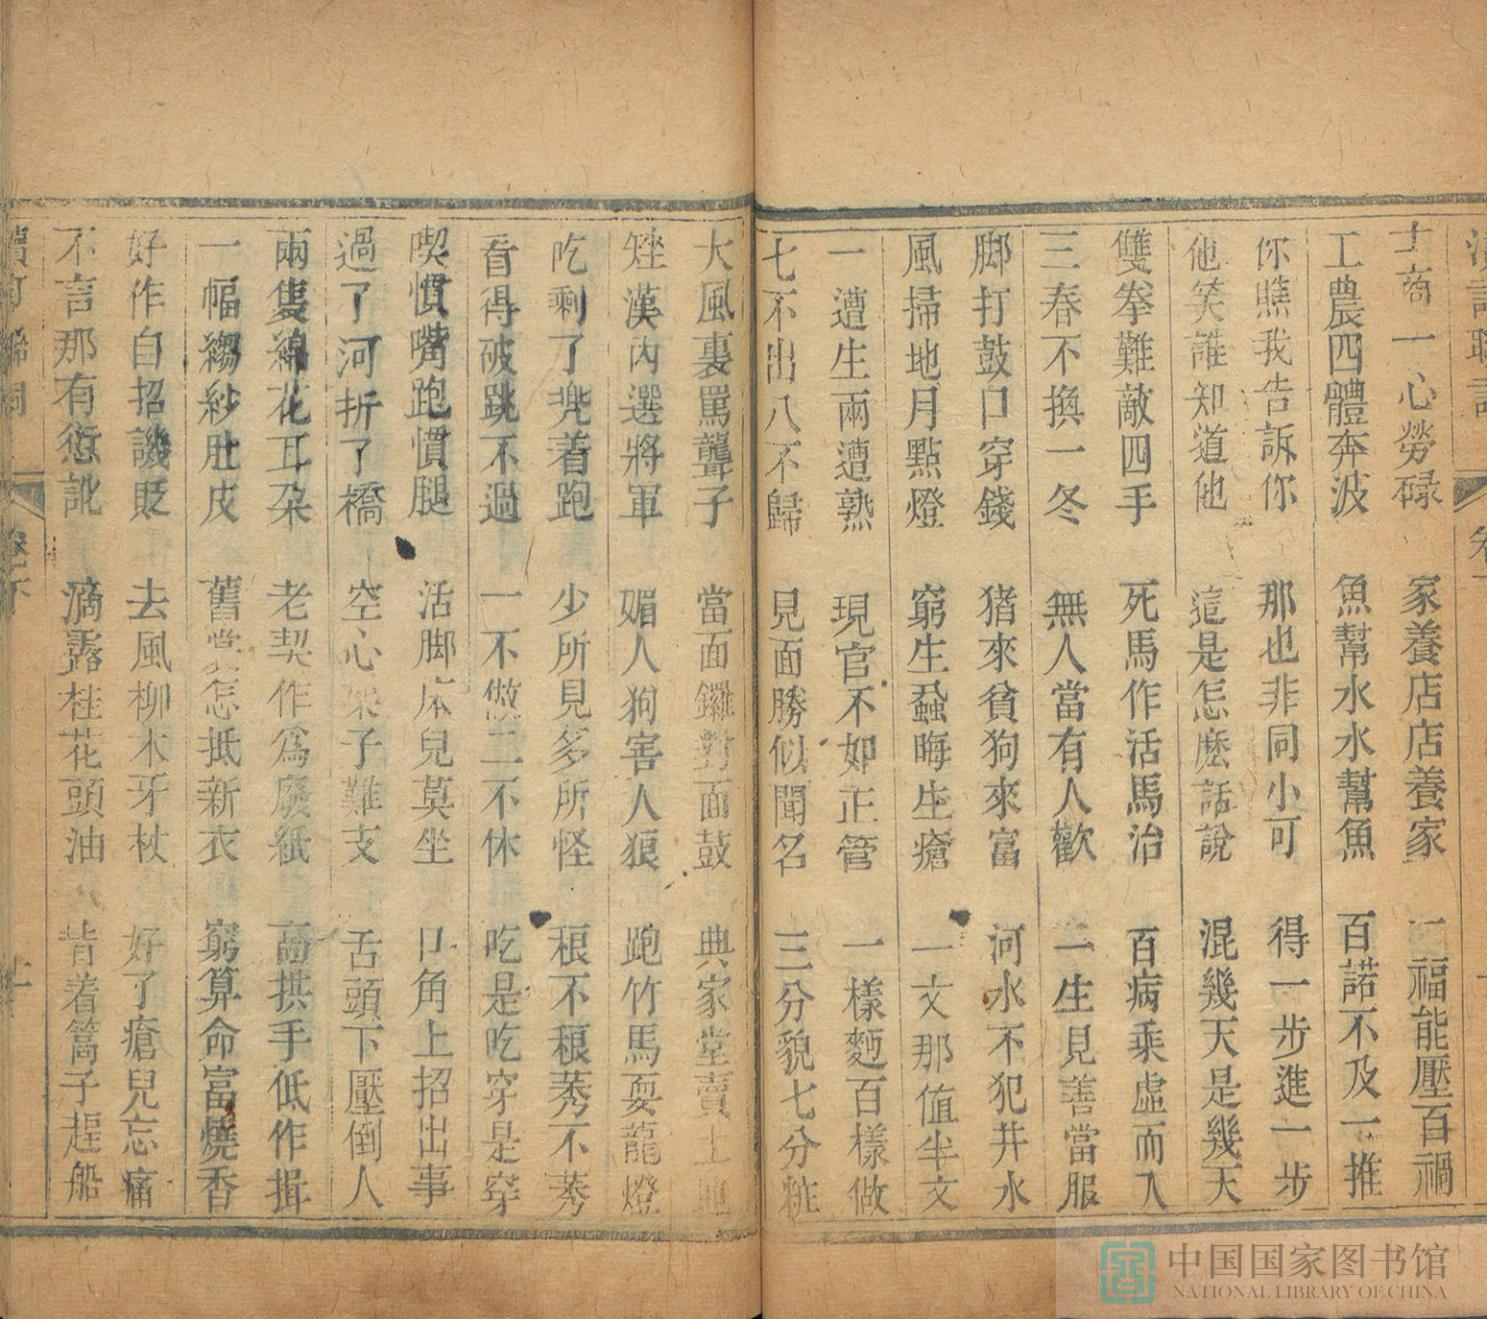 士商一心勞碌 家養店店養家 一福能壓百禍
工農四體奔波 魚幫水水幫魚 百諾不及一推
你瞧我告訴你 那也非同小可 得一步進一步
他笑誰知道他 這是怎麽話說 混幾天是幾天
雙拳難敵四手 死馬作活馬治 百病乘虛而入
三春不換一冬 無人當有人歡 一生見善當服
脚打鼓口穿錢 猪來貧狗來富 河水不犯井水
風掃地月點燈 窮生蝨晦生瘡 一文那值半文
一遭生兩遭熟 現官不如正管 一樣麪百樣做
七不出八不歸 見面勝似聞名 三分貌七分粧
大風裏罵聾子 當面鑼對面鼓 典家堂賣土地
矬漢內選將軍 媚人狗害人狼 跑竹馬耍龍燈
吃剩了兜着跑 少所見多所怪 稂不稂莠不莠
看得破跳不過 一不做二不休 吃是吃穿是穿
喫慣嘴跑慣腿 活脚床兒莫坐 口角上招出事
過了河折了橋 空心架子難支 舌頭下壓倒人
兩隻綿花耳朶 老契作爲廢紙 高拱手低作揖
一幅縐紗肚皮 舊棠怎抵新衣 窮算命富燒香
好作自招譏貶 去風柳木牙杖 好了瘡兒忘痛
不言那有愆訛 滴露桂花頭油 背着篙子趕船
卷下
中国国家图书馆
NATIONAL LIBRARY OF CHINA